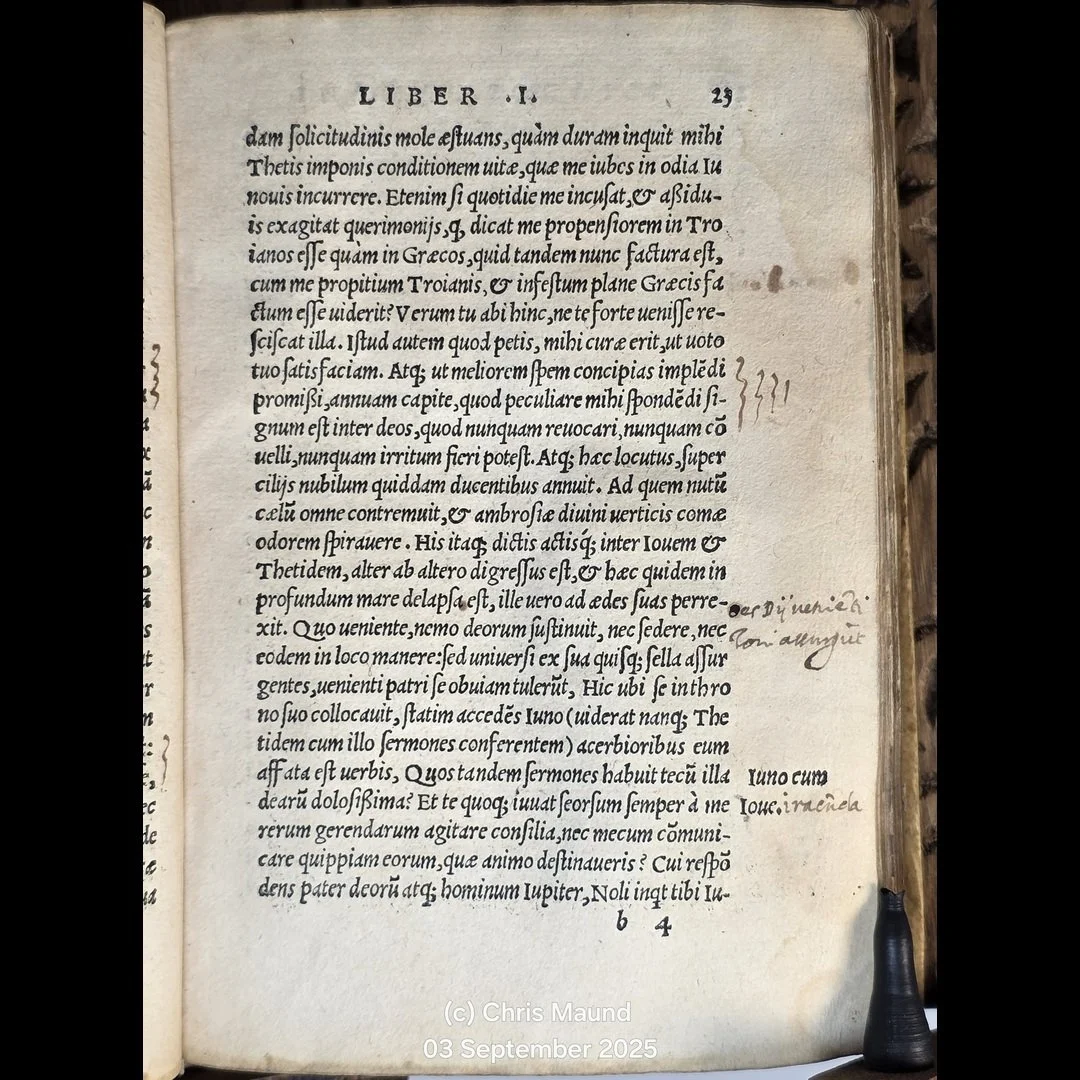 LIBER .I. 23
dam ſolicitudinis mole æſtuans, quàm duram inquit mihi
Thetis imponis conditionem uitæ, quæ me iubes in odia Iu
nouis incurrere. Etenim ſi quotidie me incuſat, & aßidu-
is exagitat querimonijs, ꝙ dicat me propenſiorem in Tro
ianos eſſe quàm in Græcos, quid tandem nunc factura eſt,
cum me propitium Troianis, & infeſtum plane Græcis fa
ctum eſſe uiderit? Verum tu abi hinc, ne te forte ueniſſe re-
ſciſcat illa. Iſtud autem quod petis, mihi curæ erit, ut uoto
tuo ſatisfaciam. Atq; ut meliorem ſpem concipias implẽdi
promißi, annuam capite, quod peculiare mihi ſpondẽdi ſi-
gnum eſt inter deos, quod nunquam reuocari, nunquam cõ
uelli, nunquam irritum fieri poteſt. Atq; hæc locutus, ſuper
cilijs nubilum quiddam ducentibus annuit. Ad quem nutũ
cælũ omne contremuit, & ambroſiæ diuini uerticis comæ
odorem ſpirauere. His itaq; dictis actisq́; inter Iouem &
Thetidem, alter ab altero digreſſus eſt, & hæc quidem in
profundum mare delapſa eſt, ille uero ad ædes ſuas perre-
xit. Quo ueniente, nemo deorum ſuſtinuit, nec ſedere, nec
eodem in loco manere: ſed uniuerſi ex ſua quiſq; ſella aſſur
gentes, uenienti patri ſe obuiam tulerũt, Hic ubi ſe in thro
no ſuo collocauit, ſtatim accedẽs Iuno (uiderat nanq; The
tidem cum illo ſermones conferentem) acerbioribus eum
affata eſt uerbis, Quos tandem ſermones habuit tecũ illa
Iuno cum
dearũ doloſißima? Et te quoq; iuuat ſeorſum ſemper à me
Ioue. iracũda
rerum gerendarum agitare conſilia, nec mecum cõmuni-
care quippiam eorum, quæ animo deſtinaueris? Cui reſpõ
dens pater deorũ atq; hominum Iupiter, Noli inqt tibi Iu-
b 4
(c) Chris Maund
03 September 2025